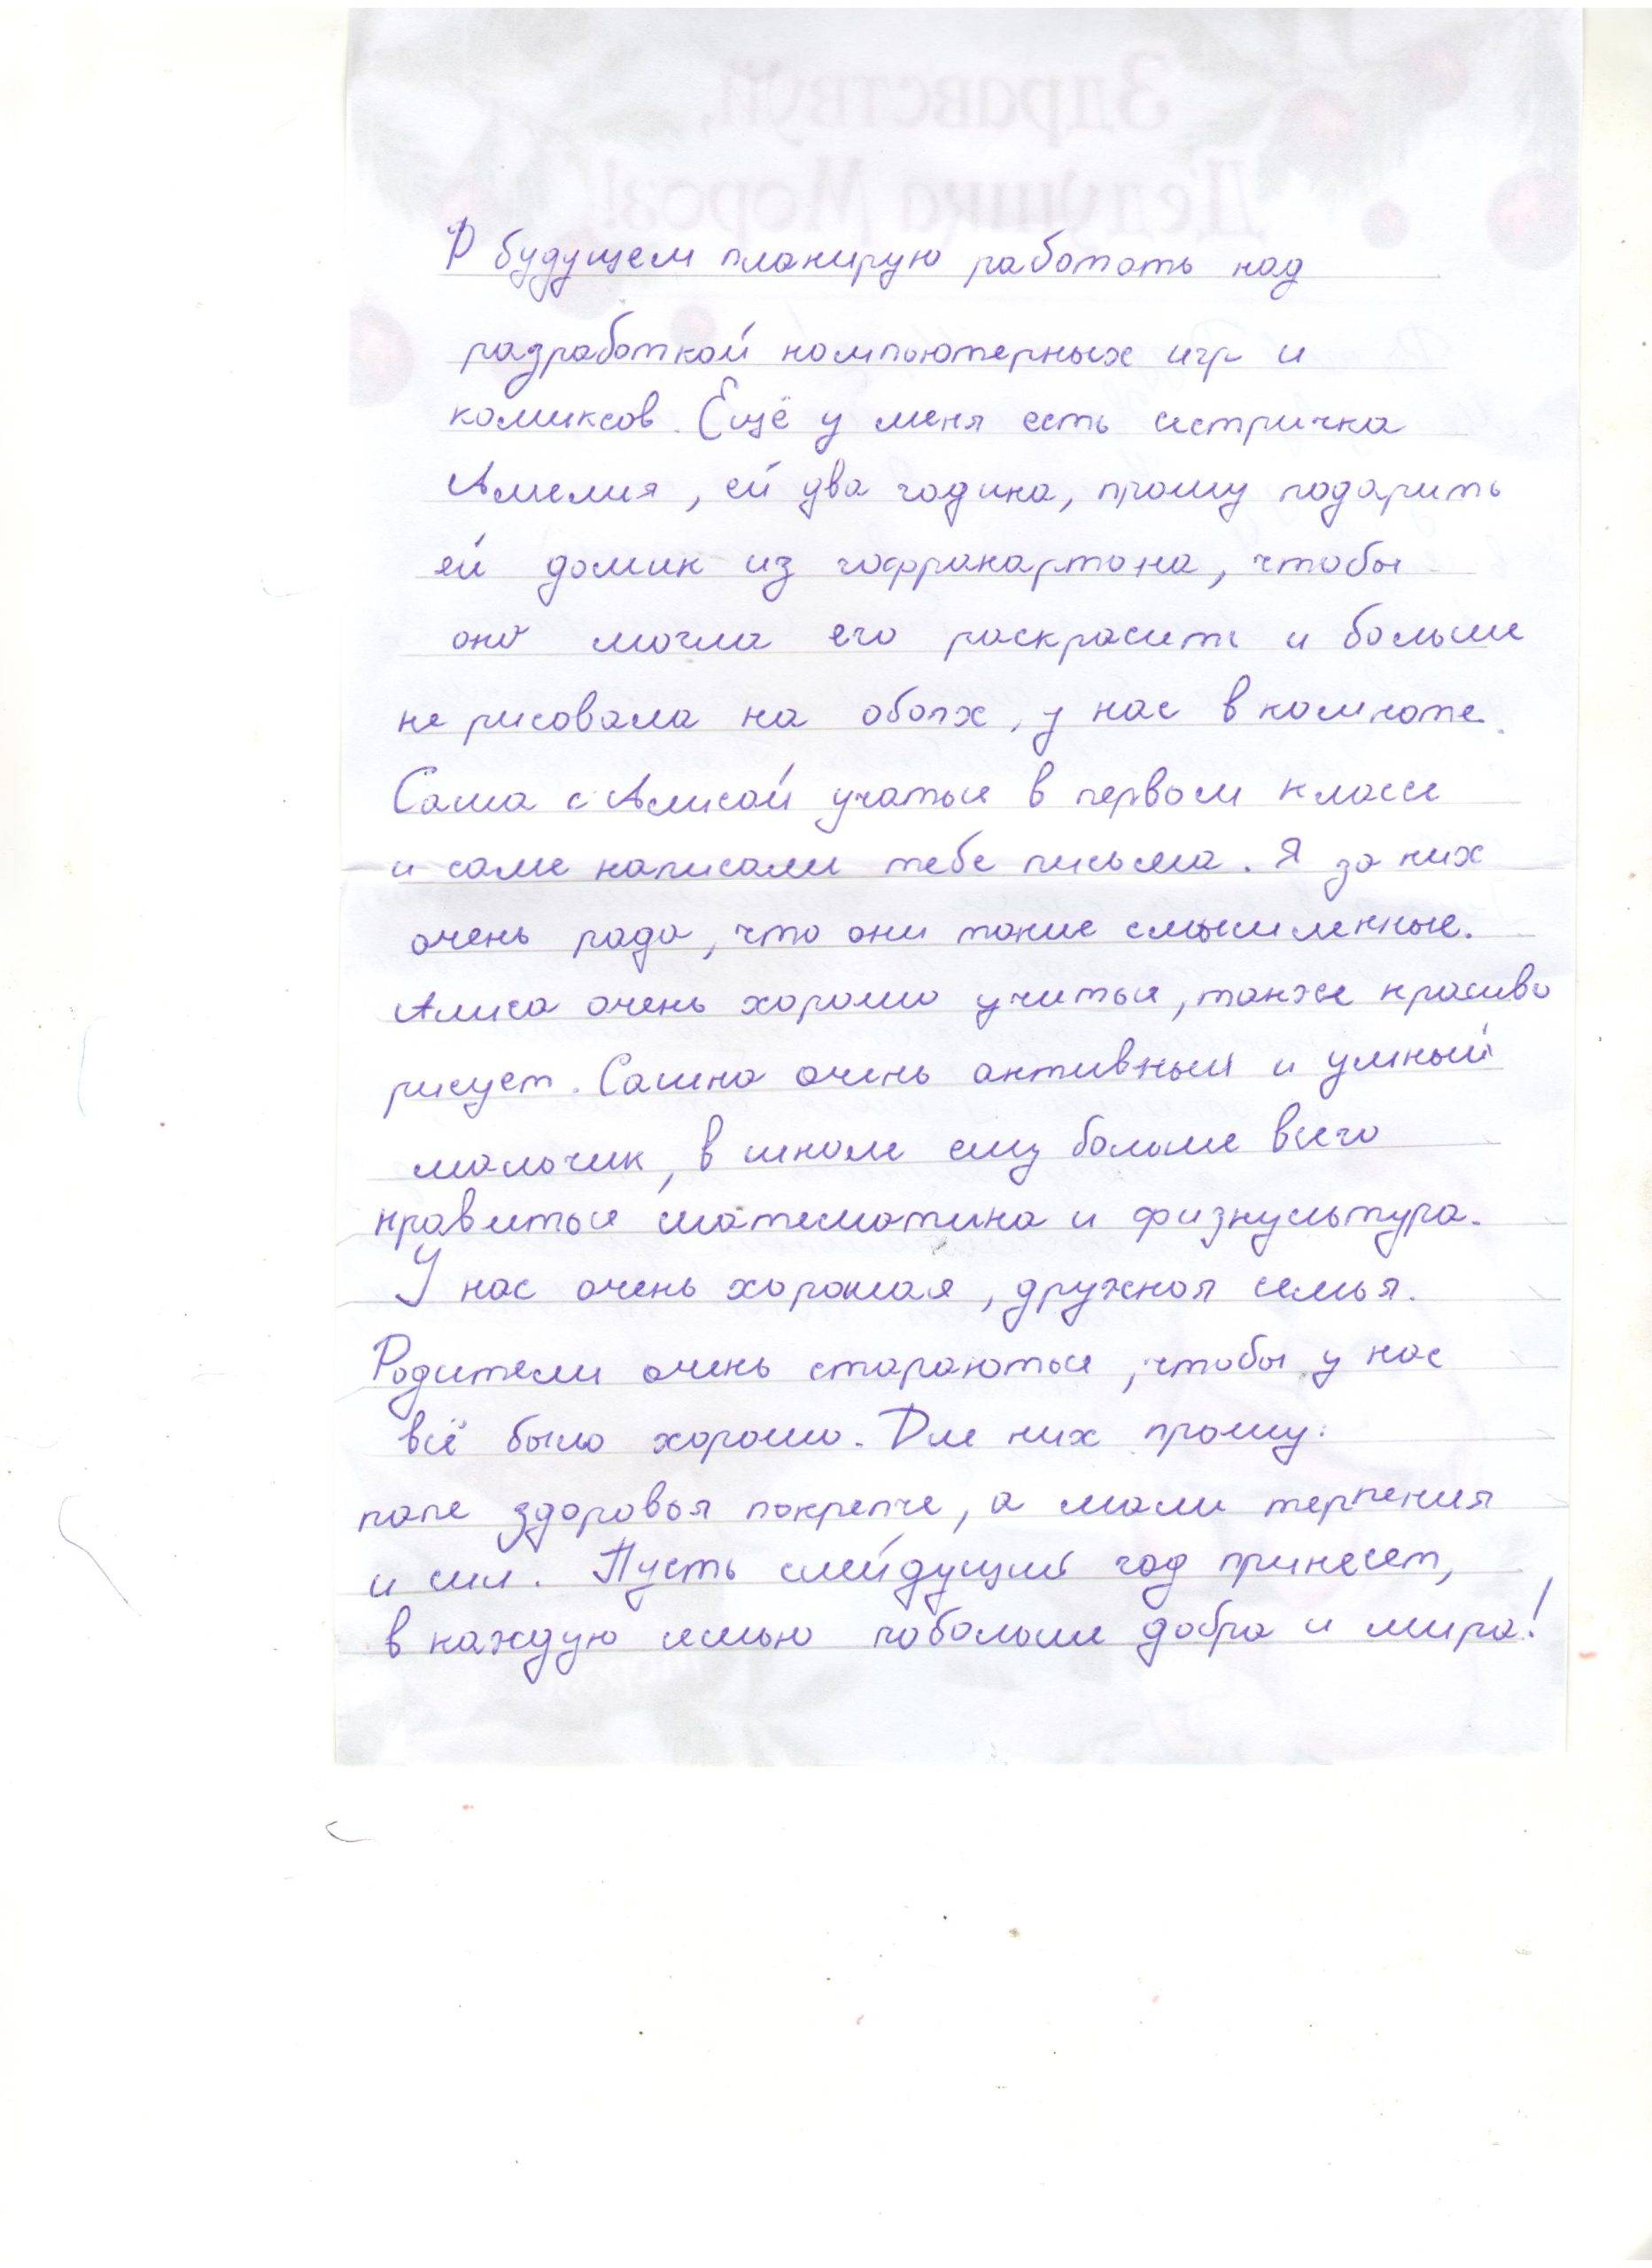 Здравствуй,
Дедушка Мороз!
В будущем планирую работать над
разработкой компьютерных игр и
комиксов. Ещё у меня есть сестричка
Амелия, ей два годика, прошу подарить
ей домик из гофракартона, чтобы
она могла его раскрасить и больше
не рисовала на обоях, у нас в комнате.
Саша с Алисой учаться в первом классе
и саме написали тебе письма. Я за них
очень рада, что они такие смышленные.
Алиса очень хорошо учиться, также красиво
рисует. Сашка очень активный и умный
мальчик, в школе ему больше всего
нравиться математика и физкультура.
У нас очень хорошая, дружная семья.
Родители очень стараються, чтобы у нас
всё было хорошо. Для них прошу:
папе здоровья покрепче, а маме терпения
и сил. Пусть следующий год принесет,
в каждую семью побольше добра и мира!